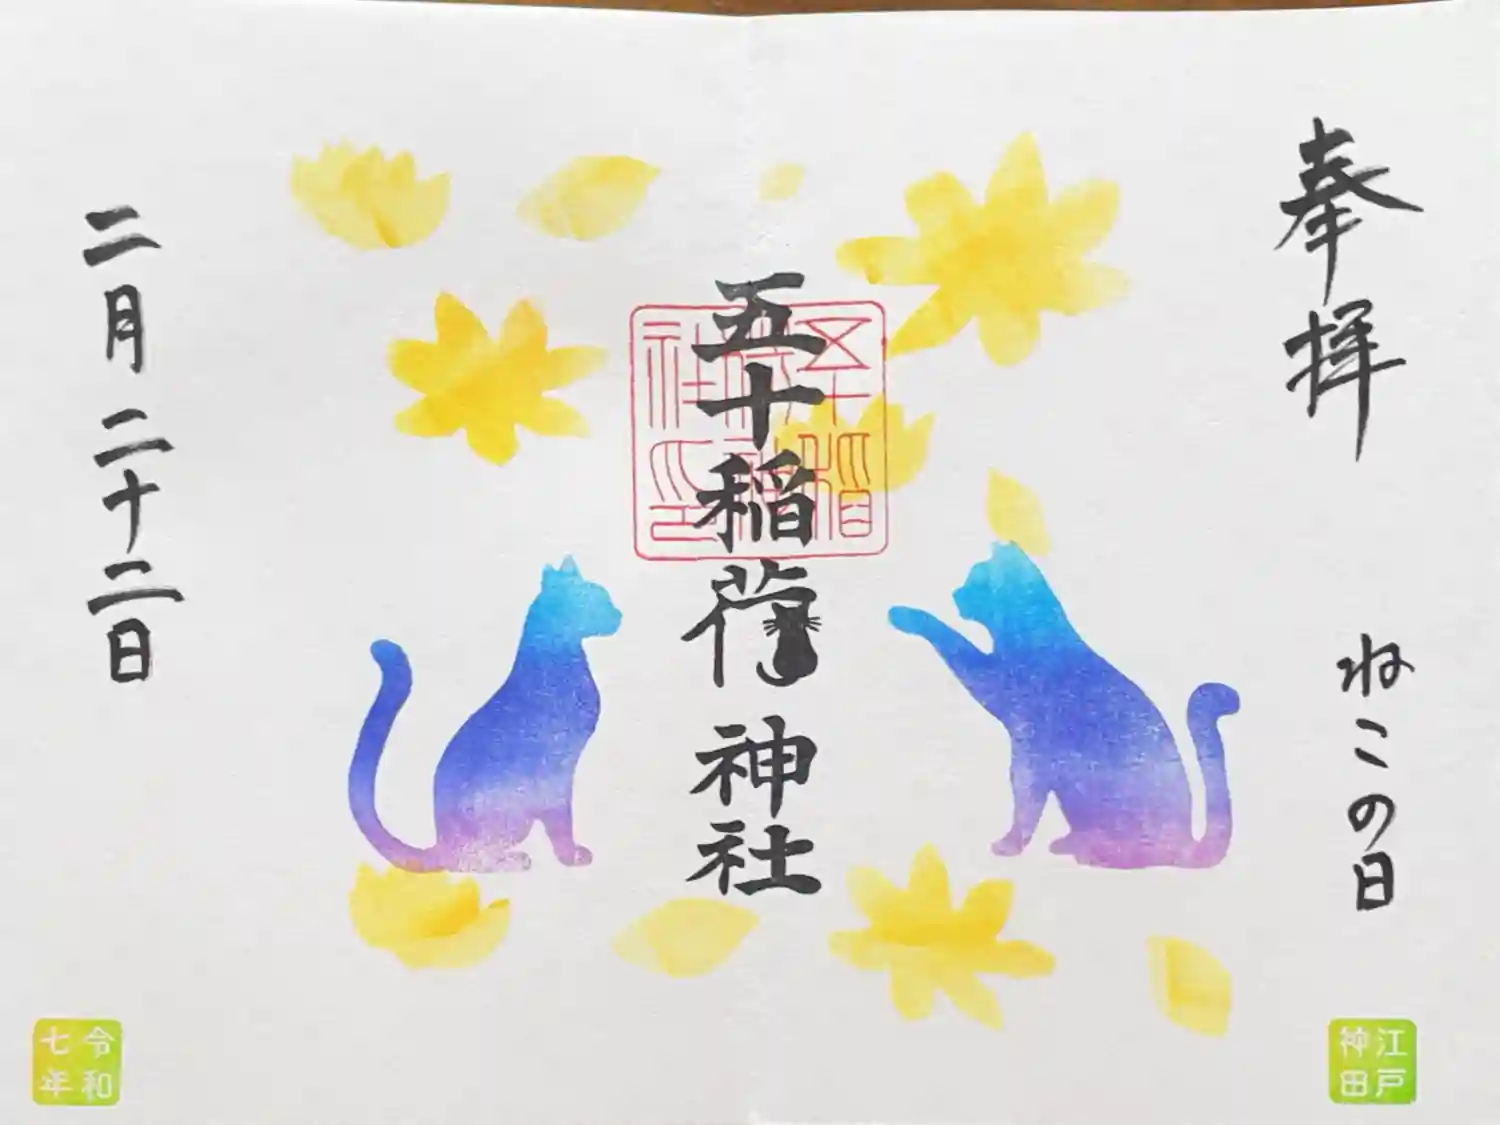 奉拝
ねこの日
江戸
神田
五十稲荷神社
五十稲
荷神
社之印
二月二十二日
令和
七年